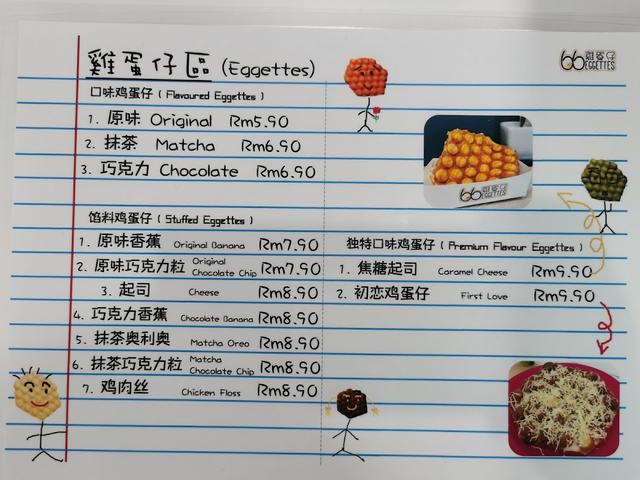 雞蛋仔區 (Eggettes)
66 雞蛋仔 EGGETTES
口味鸡蛋仔 ( Flavoured Eggettes )
1. 原味 Original Rm5.90
2. 抹茶 Matcha Rm6.90
3. 巧克力 Chocolate Rm6.90
66 雞蛋仔 EGGETTES
馅料鸡蛋仔 ( Stuffed Eggettes )
1. 原味香蕉 Original Banana Rm7.90
2. 原味巧克力粒 Original Chocolate Chip Rm7.90
3. 起司 Cheese Rm8.90
4. 巧克力香蕉 Chocolate Banana Rm8.90
5. 抹茶奥利奥 Matcha Oreo Rm8.90
6. 抹茶巧克力粒 Matcha Chocolate Chip Rm8.90
7. 鸡肉丝 Chicken Floss Rm8.90
独特口味鸡蛋仔 ( Premium Flavour Eggettes )
1. 焦糖起司 Caramel Cheese Rm9.90
2. 初恋鸡蛋仔 First Love Rm9.90